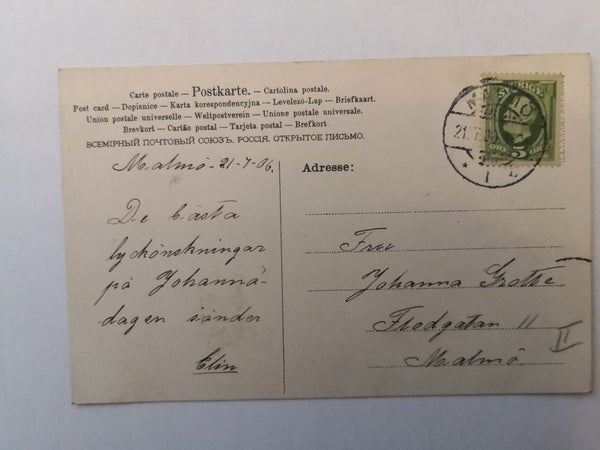 Carte postale — Postkarte. — Cartolina postale.
Post card — Dopisnice — Karta korespondencyjna — Levelező-Lap — Briefkaart.
Union postale universelle — Weltpostverein — Unione postale universale.
Brevkort — Cartão postal — Tarjeta postal — Brefkort.
ВСЕМІРНЫЙ ПОЧТОВЫЙ СОЮЗЪ. РОССІЯ. ОТКРЫТОЕ ПИСЬМО.
SVERIGE
MALMÖ
21.7.
5
ÖRE
1
Malmö 21-7-06.
Adresse:
De bästa
lyckönskningar
på Johanna-
dagen sänder
Elin
Fru
Johanna Grotte
Flodgatan 11
Malmö
II